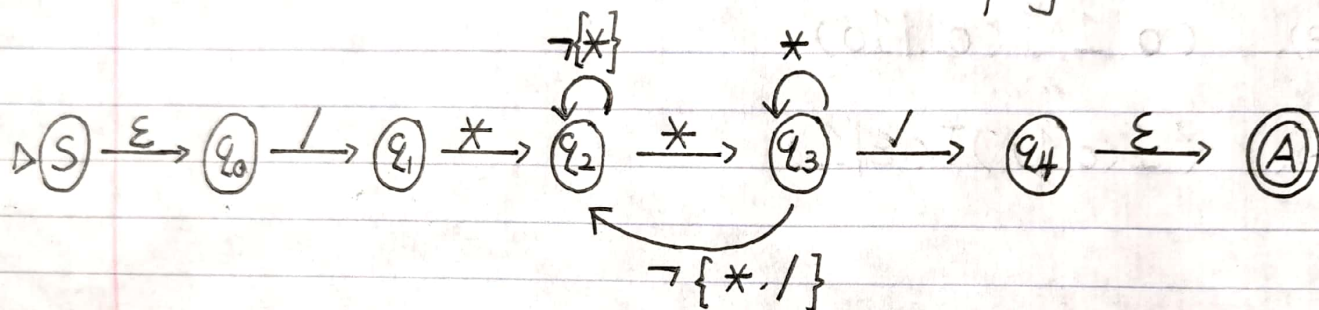 ¬{*} *
▷ S ε q₀ / q₁ * q₂ * q₃ / q₄ ε A
¬{*,/}